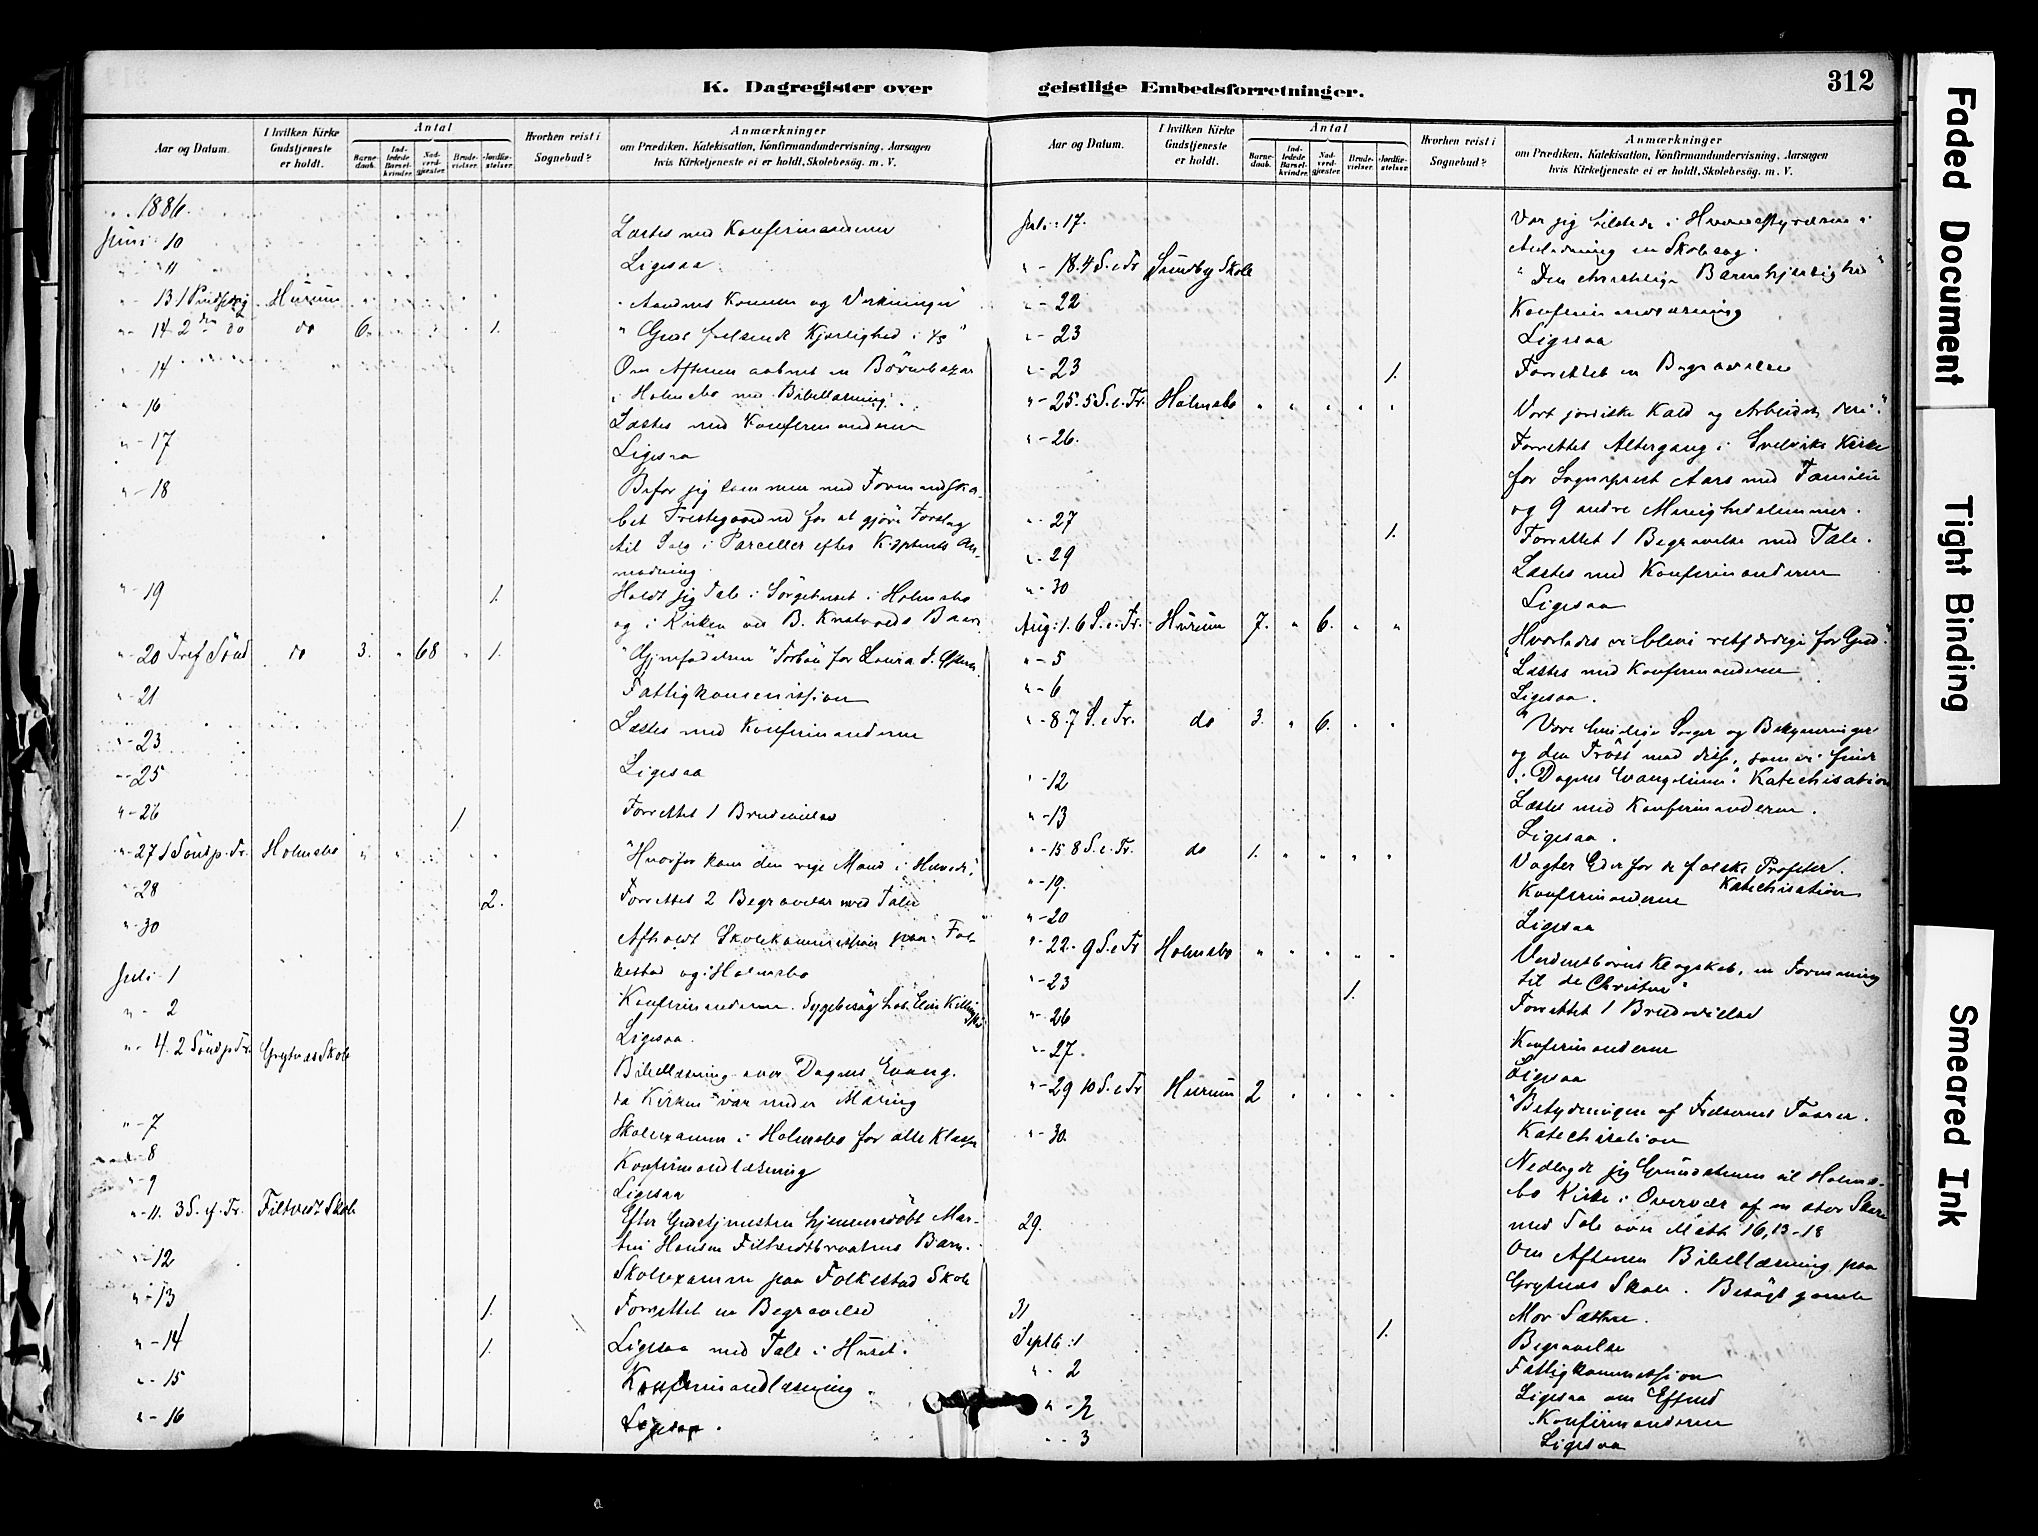 K. Dagregister over geistlige Embedsforretninger.
312
Aar og Datum.
I hvilken Kirke Gudstjeneste er holdt.
Antal
Barnedaab.
Indledede Barselkvinder.
Nadverdgjæster.
Brudevielser.
Jordfæstelser.
Hvorhen reist i Sognebud?
Anmærkninger
om Prædiken, Katekisation, Konfirmandundervisning, Aarsagen
hvis Kirketjeneste ei er holdt, Skolebesøg. m. V.
1886.
Juni 10 Læstes med Konfirmanderne
" 11 Ligesaa
" 13 1 Pindsedag Hurum " Aandens Komme og Virkninger"
" 14 2den do do 6. 1. " Guds frelsende Kjærlighed i
14 Om Aftenen aabnet en Börnebazar
i Holmsbo med Bibellæsning.
" 16 Læstes med Konfirmanderne
" 17 Ligesaa
" 18 Befor jeg sammen med Formandska-
bet Prestegaarden for at gjöre Forslag
til Salg i Parceller efter Kaptents An-
modning.
" 19 1. Holdt jeg Tale i Sörgehuset i Holmsbo
og i Kirken ved B. Knatvolds Baare
" 20 Tref Sönd do 3. " 68 " 1. "Gjenfödelsen"
" 21 Fattigkommission
" 23 Læstes med Konfirmanderne
" 25 Ligesaa
" 26 1 Forrettet 1 Brudevielse
" 27 1 Sönd p. Tr. Holmsbo "Hvorfor kom den rige Mand i Helvede"
" 28 2. Forrettet 2 Begravelser med Tale
" 30 Afholdt Skolekommission paa Fol-
kestad og i Holmsbo
Juli 1 Konfirmanderne. Sygebesög hos
" 2 Ligesaa.
" 4. 2 Sönd p. Tr. Grytnes Skole Bibellæsning over Dagens Evang.
da Kirken var under Maling
" 7 Skolexamen i Holmsbo for alle Klasser
" 8 Konfirmandlæsning
" 9 Ligesaa
" 11. 3 S. e. Tr. Filtvedt Skole Efter Gudstjenesten hjemmedöbt Mar-
tin Hansen Filtvedtbraatens Barn.
" 12 Skolexamen paa Folkestad Skole
" 13 1. Forrettet en Begravelse
" 14 1. Ligesaa med Tale i Huset.
" 15 Konfirmandlæsning.
" 16 Ligesaa.
Aar og Datum.
I hvilken Kirke Gudstjeneste er holdt.
Antal
Barnedaab.
Indledede Barselkvinder.
Nadverdgjæster.
Brudevielser.
Jordfæstelser.
Hvorhen reist i Sognebud?
Anmærkninger
om Prædiken, Katekisation, Konfirmandundervisning, Aarsagen
hvis Kirketjeneste ei er holdt, Skolebesøg. m. V.
Juli 17. Var jeg tilstede i Herredsstyrelsen i
Anledning en Skolesag.
" 18. 4 S. e. Tr Sundby Skole "Den christelige Barmhjertighed"
" 22 Konfirmandlæsning
" 23 Ligesaa
" 23 1. Forrettet en Begravelse
" 25. 5 S. e. Tr. Holmsbo Vort jordiske Kald og Arbeidet deri."
" 26. Forrettet Altergang i Svelviks Kirke
for Sogneprest Aars med Familie
og 9 andre Menighedslemmer.
" 27 1. Forrettet 1 Begravelse med Tale.
" 29 Læstes med Konfirmanderne
" 30 Ligesaa
Aug: 1. 6 S. e. Tr. Hurum 7. " 6. " " "Hvorledes vi blive retfærdige for Gud."
" 5 Læstes med Konfirmanderne
" 6 Ligesaa.
" 8. 7 S. e Tr. do 3. " 6. " Vore timelige Sorger og Bekymringer
og den Tröst mod disse, som vi finde
i Dagens Evangelium". Katechisation
" 12 Læstes med Konfirmanderne.
" 13 Ligesaa.
" 15 8 S. e. Tr. do 1. Vogter Eder for de falske Profeter.
Katechisation
" 19. Konfirmanderne
" 20 Ligesaa
" 22. 9 S. e Tr Holmsbo Verdensbörns Klogskab, en Formaning
til de Christne"
" 23 1. Forrettet 1 Brudevielse
" 26 Konfirmanderne
" 27. Ligesaa
" 29 10 S. e Tr Hurum 2 "Betydningen af Frelserens Taarer.
Katechisation
" 30. Nedlagde jeg Grundstenen til Holms-
bo Kirke i Overvær af en stor Skare
med Tale over Matth 16, 13-18
29. Om Aftenen Bibellæsning paa
Grytnes Skole. Besögt gamle
Mor Sættre.
31 1. Begravelse
Septb: 1 Fattigkommission
" 2 Ligesaa om
" 2 Konfirmanderne
" 3 Ligesaa
Faded Document
Tight Binding
Smeared Ink